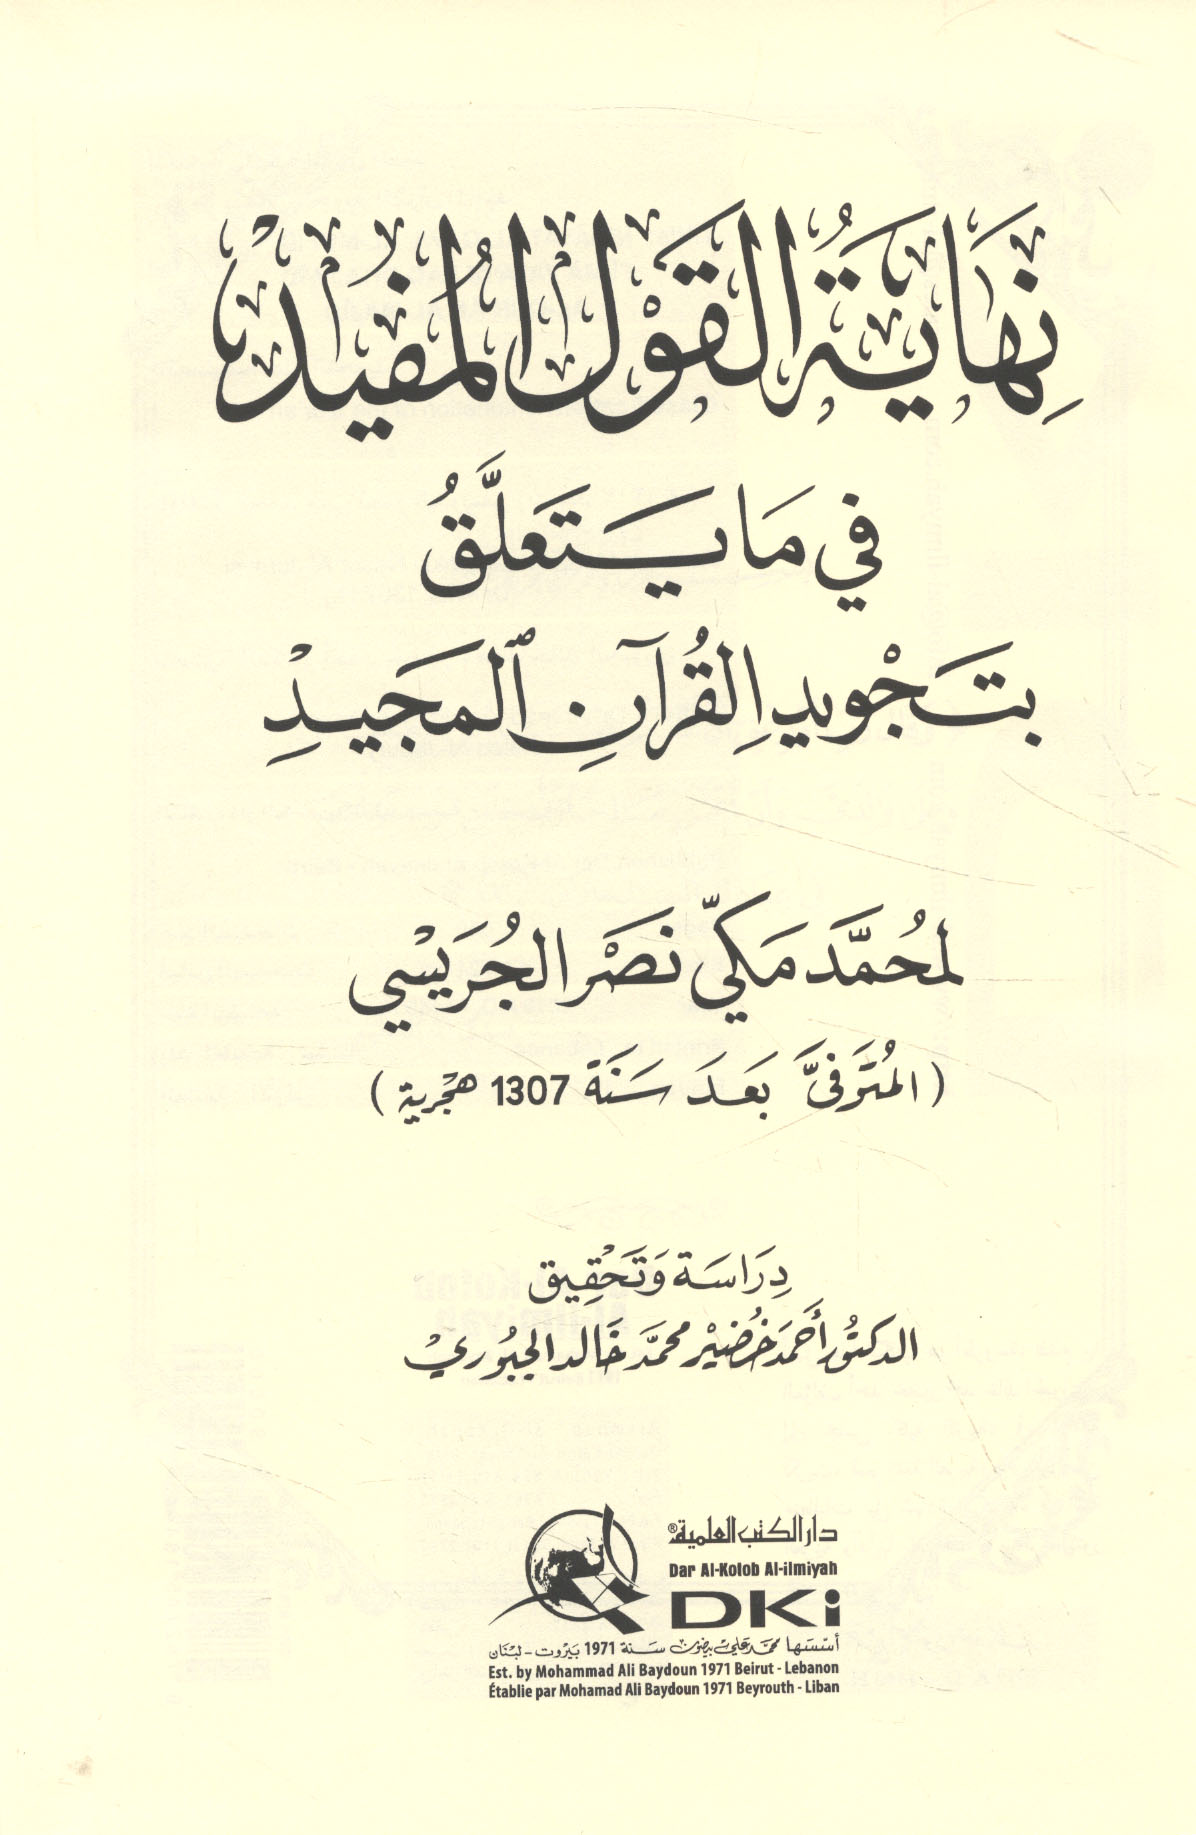 نِهَايَةُ القَوْلِ المُفِيْدْ
في مَا يَتَعَلَّقُ
بتَجْويدِ القُرآنِ ٱلمَجَيدِْ
لمُحَمَّد مَكيّ نَصْر الجُرَيْسِي
( المُتَوَفىَّ بَعدَ سَنَة 1307 هجْرية )
دِرَاسَة وَتَحْقِيق
الدكتُور أَحمَد خُضَيْر محمَّد خَالد الجبُوريْ
دار الكتب العلمية®
Dar Al-Kotob Al-ilmiyah
DKi
أسّسَها محمَّد علي بيضون سَنة 1971 بَيْروت - لبْنَان
Est. by Mohammad Ali Baydoun 1971 Beirut - Lebanon
Établie par Mohamad Ali Baydoun 1971 Beyrouth - Liban